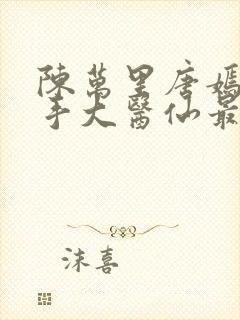 陳萬里唐嫣
手大醫仙最
沫喜